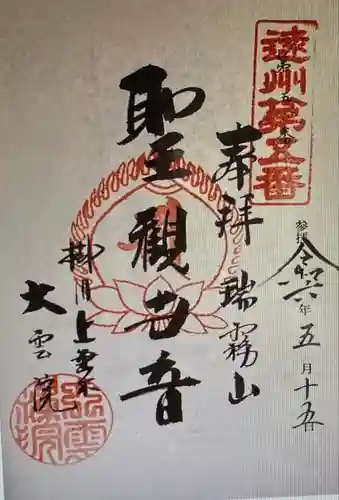 遠州第五番
奉拝
瑞霧山
参拝
令和六年五月十五日
聖観世音
掛川上垂木
大雲院